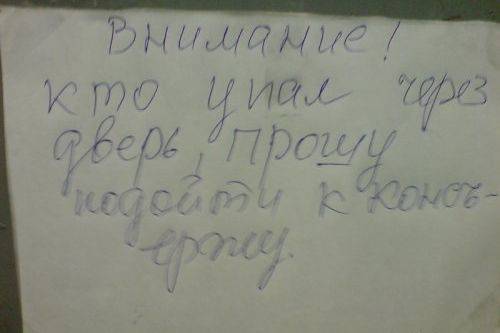 Внимание!
кто упал через
дверь, прошу
подойти к консъ-
ержу.